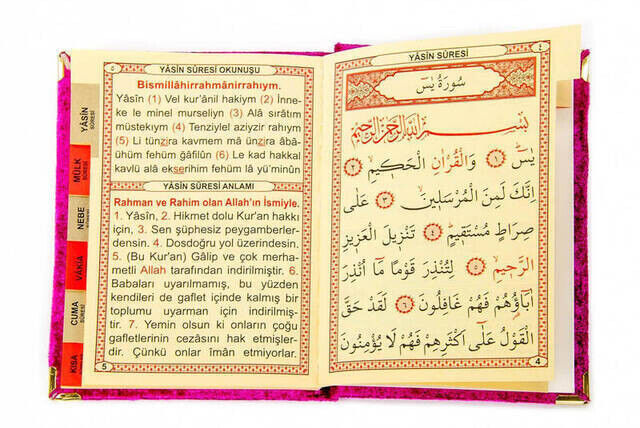 ٥
YÂSİN SÛRESİ OKUNUŞU
Bismillâhirrahmânirrahıym.
Yâsîn (1) Vel kur'ânil hakiym (2) İnne-
ke le minel murseliyn (3) Alâ sırâtım
müstekıym (4) Tenziylel aziyzir rahıym
(5) Li tünzira kavmem mâ ünzira âbâ-
ühüm fehüm ğâfilûn (6) Le kad hakkal
kavlü alâ ekserihim fehüm lâ yü'minûn
YÂSİN SÛRESİ ANLAMI
Rahman ve Rahim olan Allah'ın İsmiyle.
1. Yâsîn, 2. Hikmet dolu Kur'an hakkı
için, 3. Sen şüphesiz peygamberler-
densin. 4. Dosdoğru yol üzerindesin.
5. (Bu Kur'an) Gâlip ve çok merha-
metli Allah tarafından indirilmiştir. 6.
Babaları uyarılmamış, bu yüzden
kendileri de gaflet içinde kalmış bir
toplumu uyarman için indirilmiş-
tir. 7. Yemin olsun ki onların çoğu
gafletlerinin cezasını hak etmişler-
dir. Çünkü onlar îman etmiyorlar.
5
YÂSİN SÛRESİ
MÜLK SÛRESİ
NEBE SÛRESİ
VAKIA
CUMA SÛRESİ
KISA
YÂSİN SÛRESİ
٤
سُورَةُ يٰسٓ
بِسْمِ اللّٰهِ الرَّحْمٰنِ الرَّحِيمِ
يٰسٓ ﴿١﴾ وَالْقُرْاٰنِ الْحَكِيمِ ﴿٢﴾
اِنَّكَ لَمِنَ الْمُرْسَلِينَ ﴿٣﴾ عَلٰى
صِرَاطٍ مُسْتَقِيمٍ ﴿٤﴾ تَنْزِيلَ الْعَزِيزِ
الرَّحِيمِ ﴿٥﴾ لِتُنْذِرَ قَوْمًا مَٓا اُنْذِرَ
اٰبَٓاؤُهُمْ فَهُمْ غَافِلُونَ ﴿٦﴾ لَقَدْ حَقَّ
الْقَوْلُ عَلٰٓى اَكْثَرِهِمْ فَهُمْ لَا يُؤْمِنُونَ
4